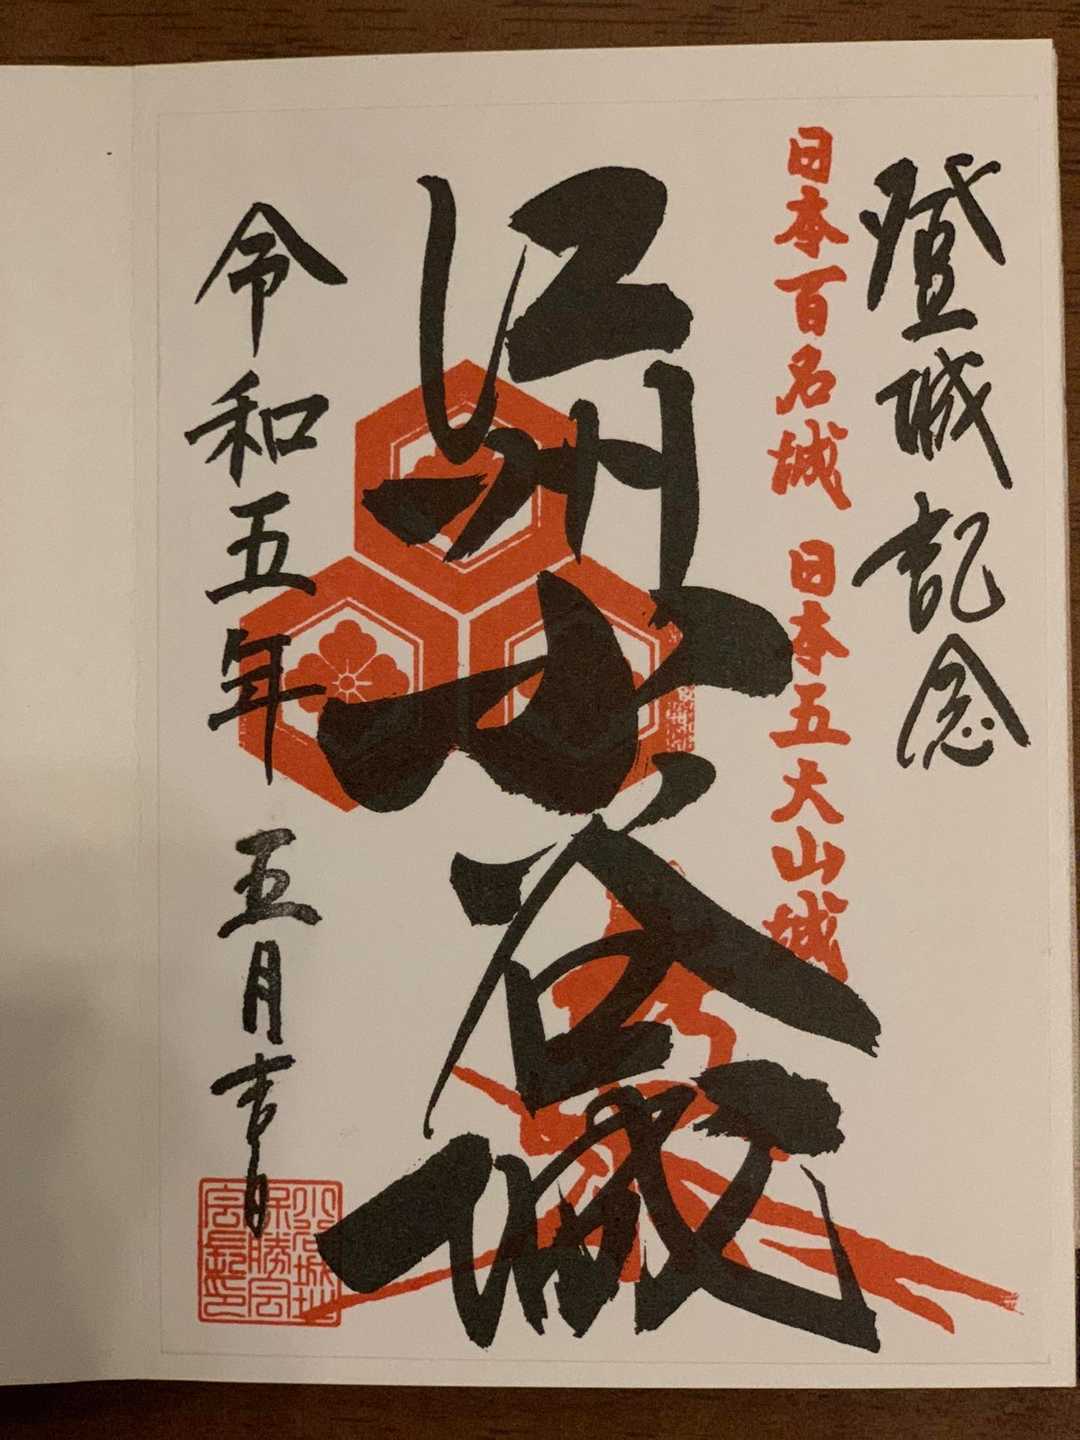 登城記念
日本百名城 日本五大山城
江州小谷城
令和五年 五月吉日